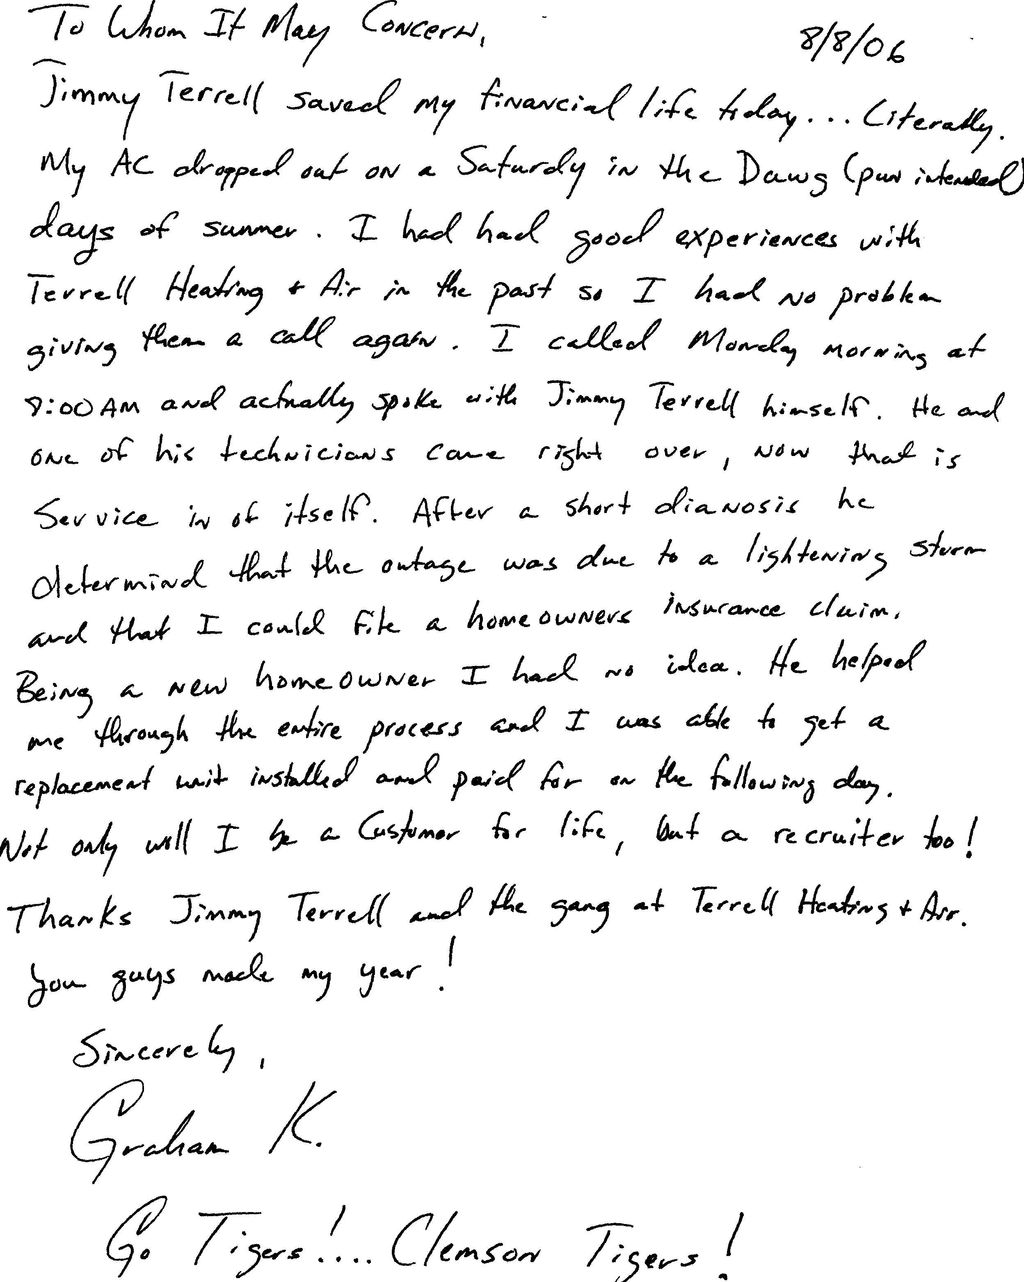 To Whom It May Concern, 8/8/06
Jimmy Terrell saved my financial life today... Literally.
My AC dropped out on a Saturdy in the Dawg (pun intended)
days of summer. I had had good experiences with
Terrell Heating + Air in the past so I had no problem
giving them a call again. I called Monday morning at
8:00 AM and actually spoke with Jimmy Terrell himself. He and
one of his technicians came right over, now that is
Service in of itself. After a short dianosis he
determind that the outage was due to a lightening storm
and that I could file a homeowners insurance claim.
Being a new homeowner I had no idea. He helped
me through the entire process and I was able to get a
replacement unit installed and paid for on the following day.
Not only will I be a Customer for life, but a recruiter too!
Thanks Jimmy Terrell and the gang at Terrell Heating + Air.
You guys made my year!
Sincerely,
Graham K.
Go Tigers!... Clemson Tigers!